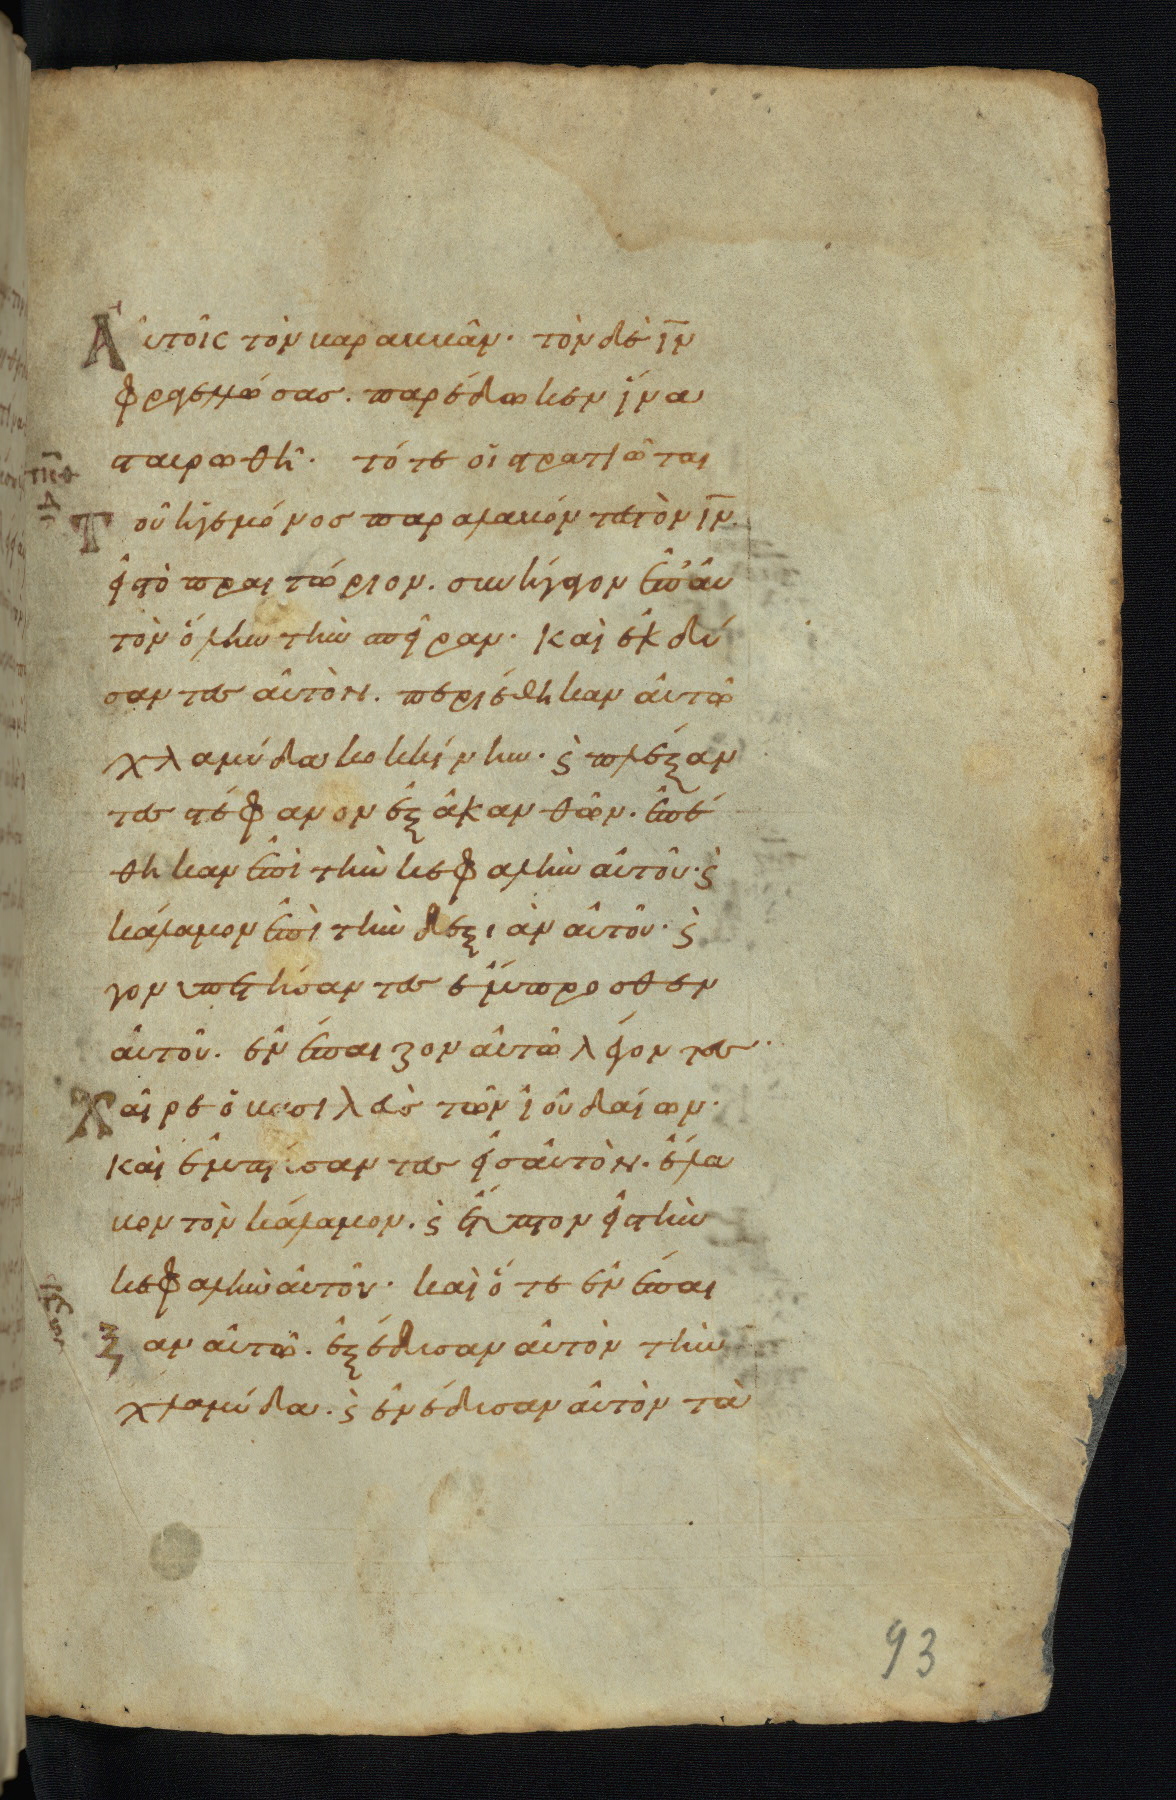 Αὐτοῖς τὸν βαραββᾶν· τὸν δὲ ι̅ν̅
φραγελλώσας. παρέδωκεν ἵνα
σταυρωθῆ· τότε οἱ στρατιῶται
Τοῦ ἡγεμόνος παραλαβόντες τὸν ι̅ν̅
εἰς τὸ πραιτώριον. συνήγαγον ἐπ' αὐ
τὸν ὅλην τὴν σπεῖραν· καὶ ἐκδύ
σαντες αὐτὸν. περιέθηκαν αὐτῶ
χλαμύδα κοκκίνην· ϛ πλέξαν
τες στέφανον ἐξ ἀκανθῶν. ἐπέ
θηκαν ἐπὶ τὴν κεφαλὴν αὐτοῦ· ϛ
κάλαμον ἐπὶ τὴν δεξιὰν αὐτοῦ· ϛ
γονυπετήσαντες ἔμπροσθεν
αὐτοῦ. ἐνέπαιζον αὐτῶ λέγοντες·
Χαῖρε ὁ βασιλεὺς τῶν ἰουδαίων·
καὶ ἐμπτύσαντες εἰς αὐτὸν. ἔλα
βον τὸν κάλαμον. ϛ ἔτυπτον εἰς τὴν
κεφαλὴν αὐτοῦ· καὶ ὅτε ἐνέπαι
ξαν αὐτῶ. ἐξέδυσαν αὐτὸν τὴν
χλαμύδα. ϛ ἐνέδυσαν αὐτὸν τὰ
93